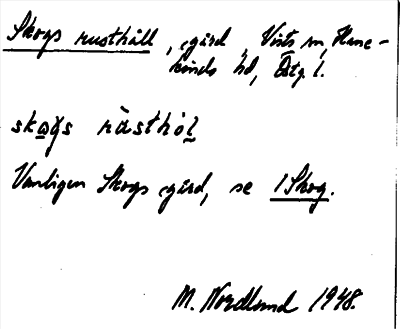 Skogs rusthåll, gård, Vists sn, Hane-
kinds hd, Östg l.
skoγs ràsthòl
Vanligen Skogs gård, se 1 Skog.
M. Nordlund 1948.